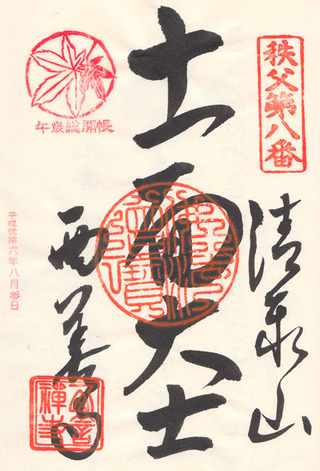 秩父第八番
清泰山
十一面大士
西善寺
午歳総開帳
平成弐拾六年八月